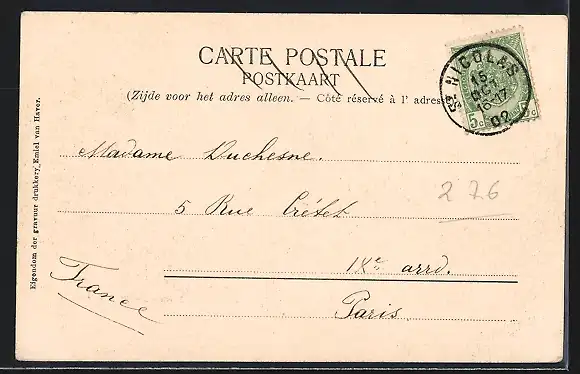 CARTE POSTALE
POSTKAART
(Zijde voor het adres alleen. — Côté réservé à l' adresse
NICOLAS
15
16-17
02
5c 5c
Madame Duchesne.
276
5 Rue Crétet
IXe arrd.
France
Paris.
Eigendom der gravuur drukkery Emiel van Haver.